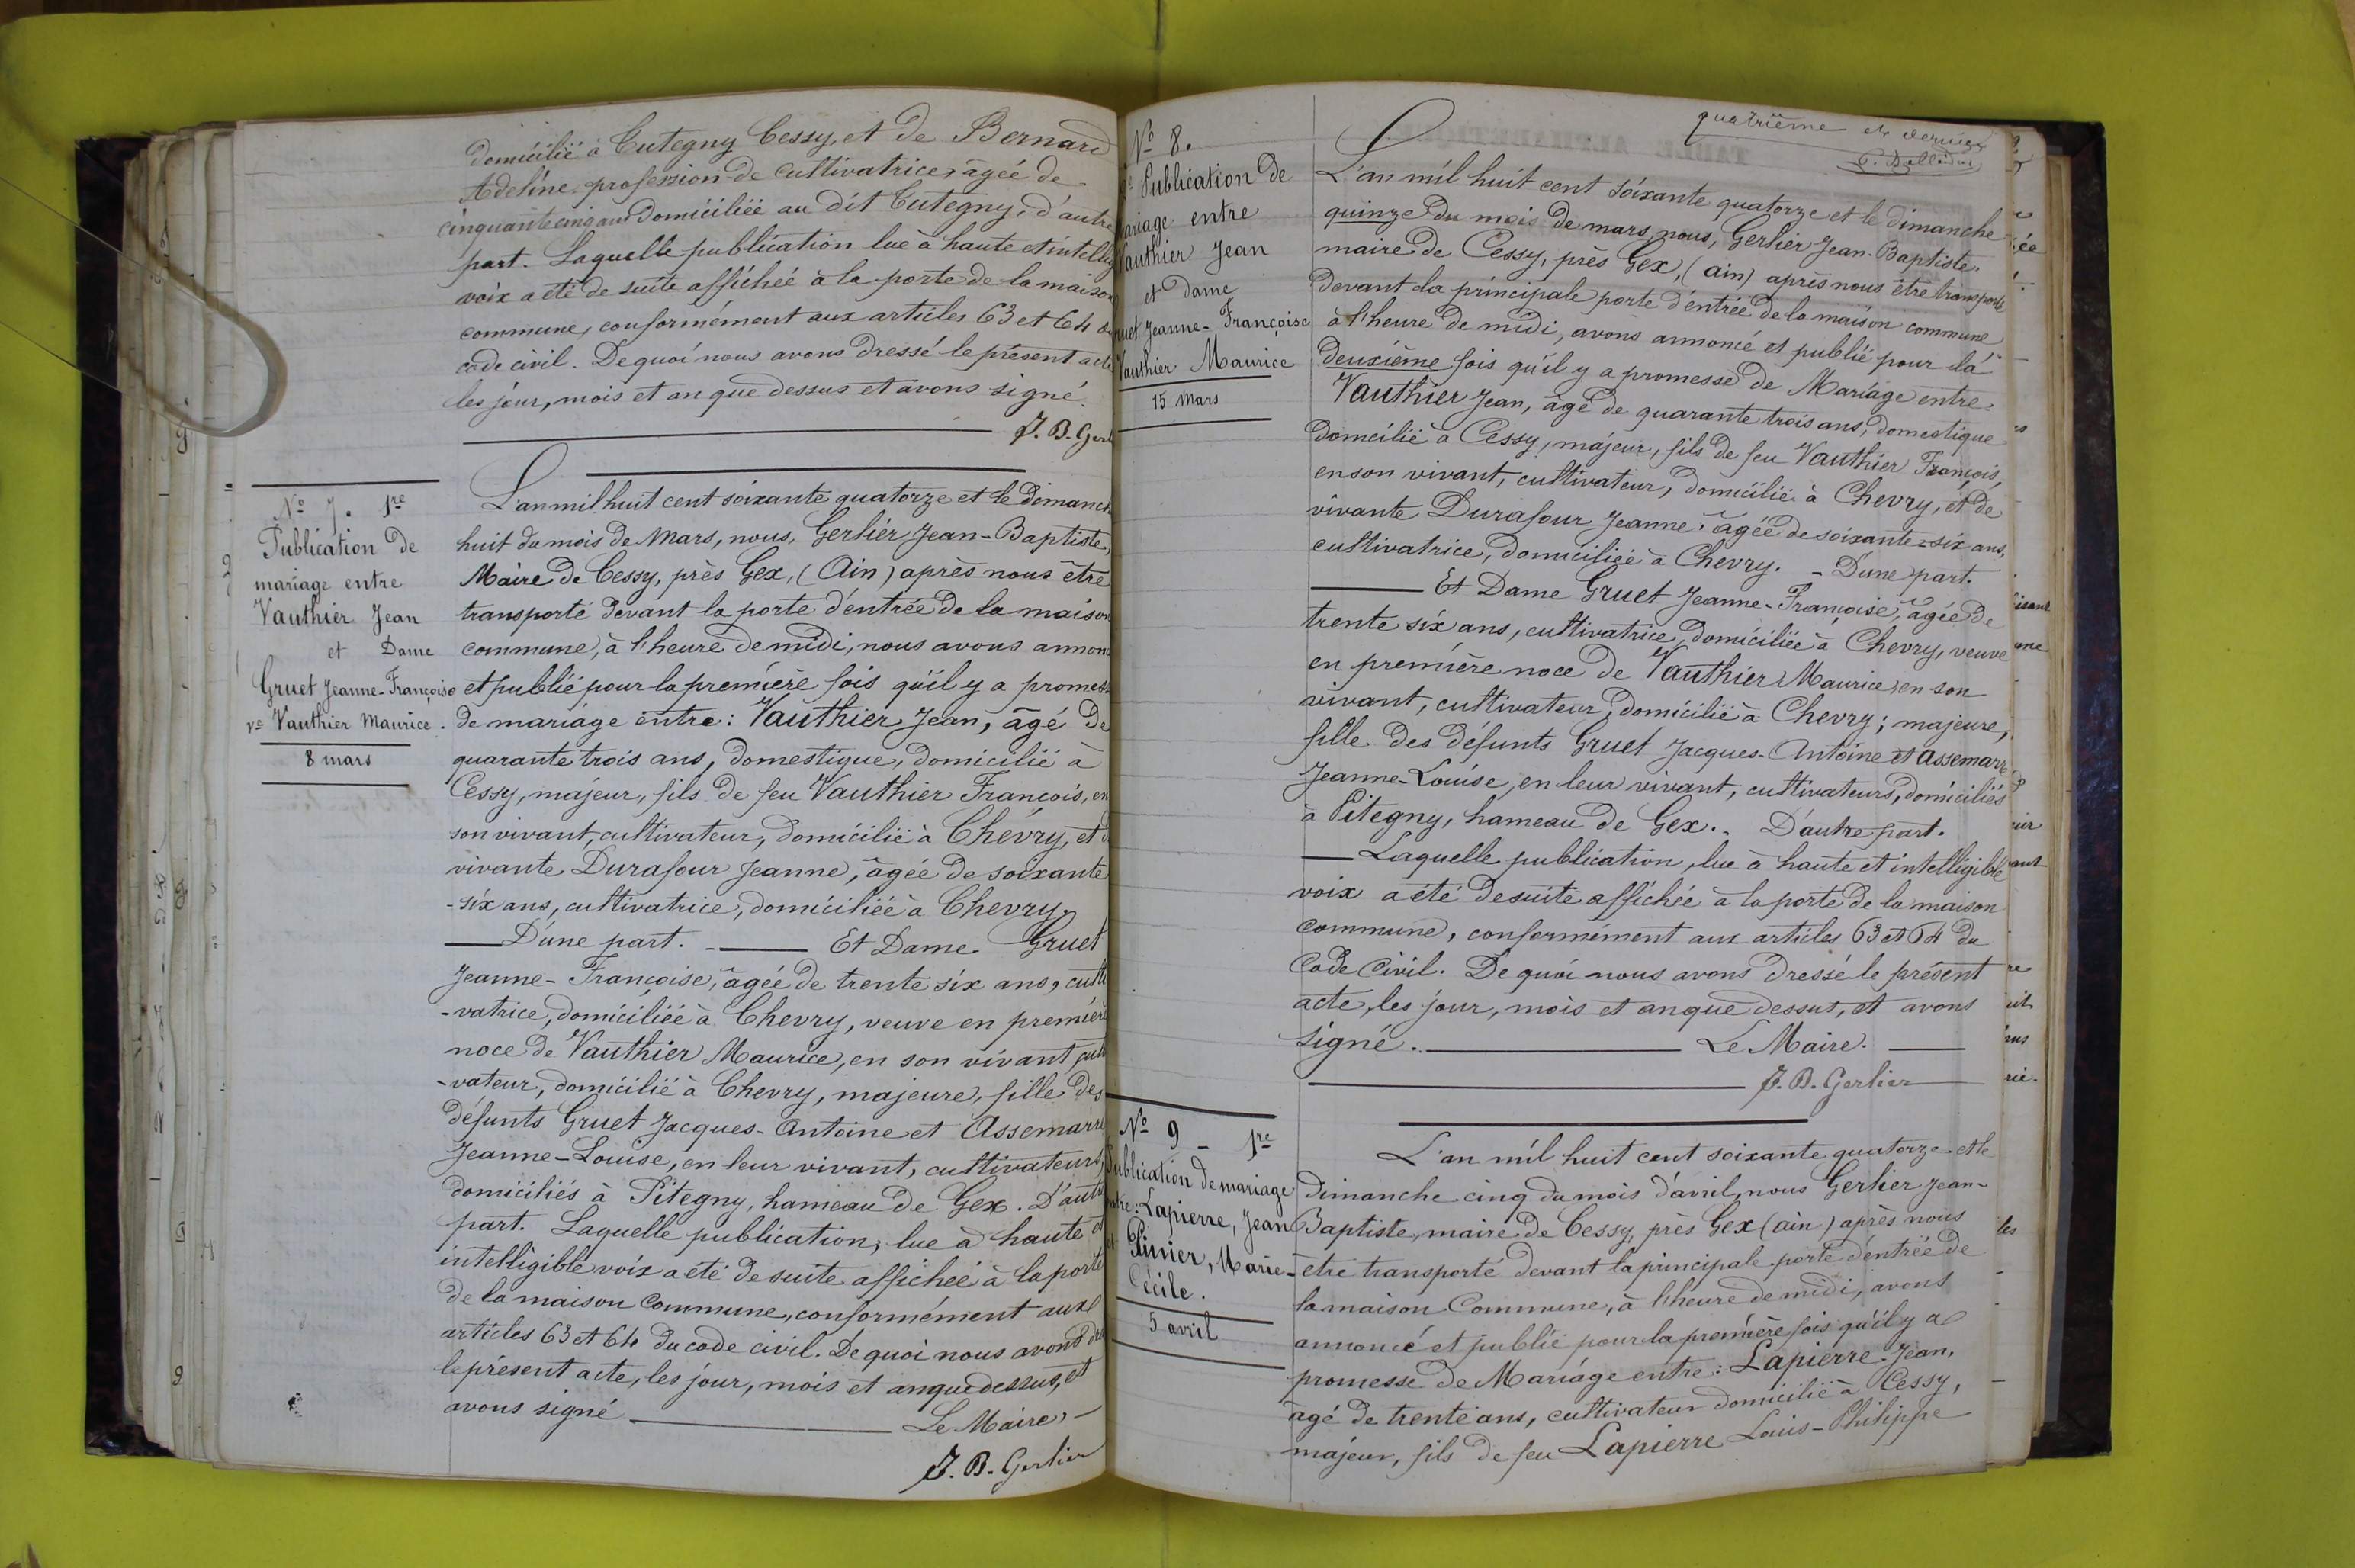 domicilié à Tutegny Cessy, et de Bernard
Adeline, profession de cultivatrice, âgée de
cinquante cinq ans domiciliée au dit Tutegny, d'autre
part. Laquelle publication lue à haute et intellig
voix a été de suite affichée à la porte de la maison
commune, conformément aux articles 63 et 64 du
code civil. De quoi nous avons dressé le présent acte
les jour, mois et an que dessus et avons signé.
J. B. Gerl
No 7. 1re
Publication de
mariage entre
Vauthier Jean
et Dame
Gruet Jeanne-Françoise
ve Vauthier Maurice.
8 mars
L'an mil huit cent soixante quatorze et le dimanch
huit du mois de Mars, nous, Gerlier Jean-Baptiste,
Maire de Cessy, près Gex, (Ain) après nous être
transporté devant la porte d'entrée de la maison
commune, à l'heure de midi, nous avons annon
et publié pour la première fois qu'il y a promess
de mariage entre: Vauthier Jean, âgé de
quarante trois ans, domestique, domicilié à
Cessy, majeur, fils de feu Vauthier François, en
son vivant, cultivateur, domicilié à Chevry, et d
vivante Durafour Jeanne, âgée de soixante
-six ans, cultivatrice, domiciliée à Chevry.
D'une part. - Et Dame Gruet
Jeanne-Françoise, âgée de trente six ans, culti
-vatrice, domiciliée à Chevry, veuve en première
noce de Vauthier Maurice, en son vivant, culti
-vateur, domicilié à Chevry, majeure, fille des
défunts Gruet Jacques-Antoine et Assemarre
Jeanne-Louise, en leur vivant, cultivateurs,
domiciliés à Pitegny, hameau de Gex. D'autre
part. Laquelle publication, lue à haute et
intelligible voix a été de suite affichée à la porte
de la maison commune, conformément aux
articles 63 et 64 du code civil. De quoi nous avons
le présent acte, les jour, mois et an que dessus, et
avons signé Le Maire,
J. B. Gerlier
quatrième et dernier
No 8.
2e Publication de
ariage entre
Vauthier Jean
et Dame
uet Jeanne-Françoise
Vauthier Maurice
15 Mars
L'an mil huit cent soixante quatorze et le dimanche
quinze du mois de mars, nous, Gerlier Jean-Baptiste,
maire de Cessy, près Gex, (ain) après nous être transporté
devant la principale porte d'entrée de la maison commune
à l'heure de midi, avons annoncé et publié pour la
deuxième fois qu'il y a promesse de Mariage entre:
Vauthier Jean, âgé de quarante trois ans, domestique
domicilié à Cessy, majeur, fils de feu Vauthier François,
en son vivant, cultivateur, domicilié à Chevry, et de
vivante Durafour Jeanne, âgée de soixante-six ans,
cultivatrice, domiciliée à Chevry. - D'une part.
Et Dame Gruet Jeanne-Françoise, âgée de
trente six ans, cultivatrice, domiciliée à Chevry, veuve
en première noce de Vauthier Maurice, en son
vivant, cultivateur, domicilié à Chevry; majeure,
fille des défunts Gruet Jacques-Antoine et Assemarre
Jeanne-Louise, en leur vivant, cultivateurs, domiciliés
à Pitegny, hameau de Gex. D'autre part.
Laquelle publication, lue à haute et intelligible
voix a été de suite affichée à la porte de la maison
commune, conformément aux articles 63 et 64 du
Code Civil. De quoi nous avons dressé le présent
acte, les jour, mois et an que dessus, et avons
signé. Le Maire.
J. B. Gerlier
No 9 - 1re
Publication de mariage
entre: Lapierre, Jean
et Pinier, Marie-
Cécile.
5 avril
L'an mil huit cent soixante quatorze et le
dimanche cinq du mois d'avril, nous Gerlier Jean-
Baptiste, maire de Cessy, près Gex (ain) après nous
être transporté devant la principale porte d'entrée de
la maison Commune, à l'heure de midi, avons
annoncé et publié pour la première fois qu'il y a
promesse de Mariage entre: Lapierre Jean,
âgé de trente ans, cultivateur domicilié à Cessy,
majeur, fils de feu Lapierre Louis-Philippe